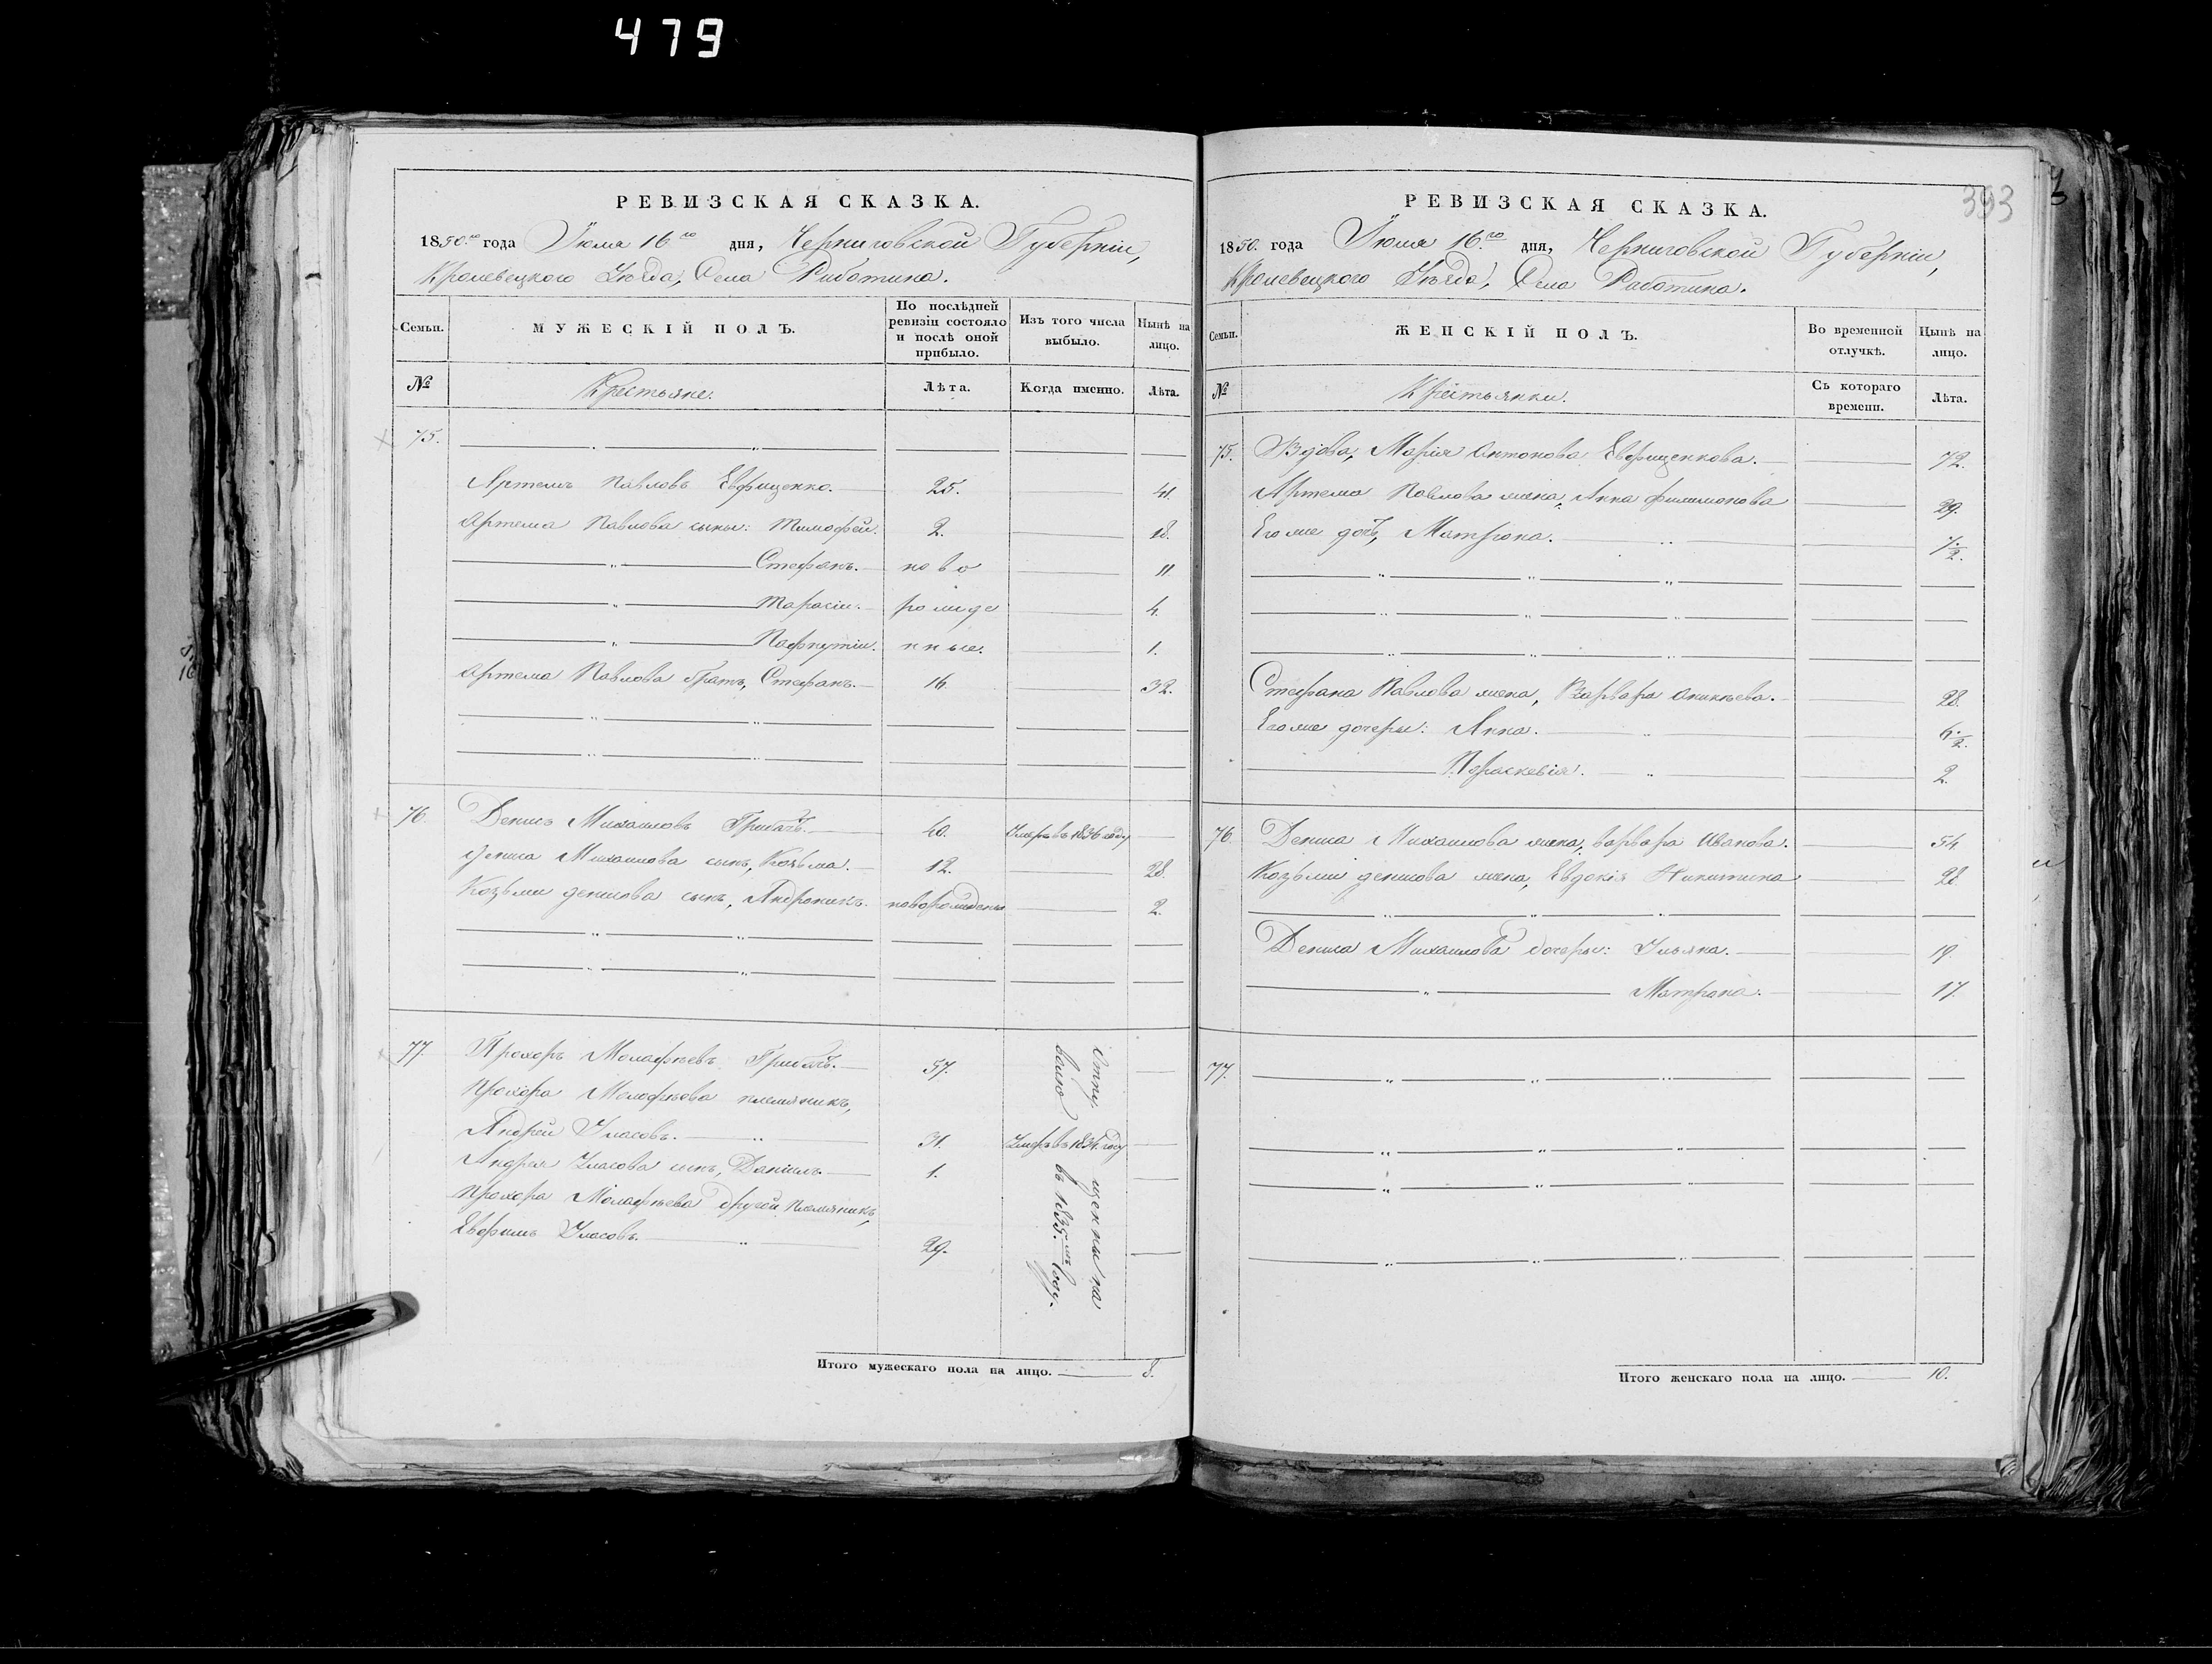 479
РЕВИЗСКАЯ СКАЗКА.
1850.го года Июля 16го дня, Черниговской Губерніи,
Кролевецкого Уѣзда, Села Работина.
Семьи.
МУЖЕСКІЙ ПОЛЪ.
По послѣдней
ревизіи состояло
и послѣ оной
прибыло.
Изъ того числа
выбыло.
Нынѣ на
лицо.
№
Крестьяне.
Лѣта.
Когда именно.
Лѣта.
75.
Артемъ Павловъ Евфищенко. 25. 41.
Артема Павлова сыны: Тимофей. 2. 18.
Стефанъ. ново 11
Тарасіи. рожде 4.
Пафнутіи. нные. 1.
Артема Павлова братъ, Стефанъ. 16 32.
76. Денисъ Михаиловъ Грибачъ. 40. Умеръ въ 1836 году
Дениса Михаилова сынъ, Козьма. 12. 28.
Козьми денисова сынъ, Андроникъ. новорожденъ 2.
77. Прохоръ Малафѣевъ Грибачъ. 57.
Прохора Малофѣева племяникъ,
Андрей Уласовъ. 31. Умеръ въ 1834 году
Андрея Уласова сынъ, Даніилъ. 1.
Прохора Малафѣева другой племяникъ,
Евфимъ Уласовъ. 29.
Отпу щенны на
волю въ 1835.мъ году.
Итого мужескаго пола на лицо. 8.
393
РЕВИЗСКАЯ СКАЗКА.
1850. года Июля 16.го дня, Черниговской Губерніи,
Кролевецкого Уѣзда, Села Работина.
Семьи.
ЖЕНСКІЙ ПОЛЪ.
Во временной
отлучкѣ.
Нынѣ на
лицо.
№
Крестьянки.
Съ котораго
времени.
Лѣта.
75. Вдова, Марія Антонова Евфищенкова. 72.
Артема Павлова жена, Анна филимонова 39.
Его же дочь, Матрона. 7.½.
Стефана Павлова жена, Варвара Аникѣева. 28.
Его же дочери: Анна. 6.½.
Параскевія. 2.
76. Дениса Михаилова жена, варвара Иванова. 54
Козьми денисова жена, Евдокія Никитина 28.
Дениса Михаилова дочери: Ульяна. 19.
Матрона. 17.
77.
Итого женскаго пола на лицо. 10.